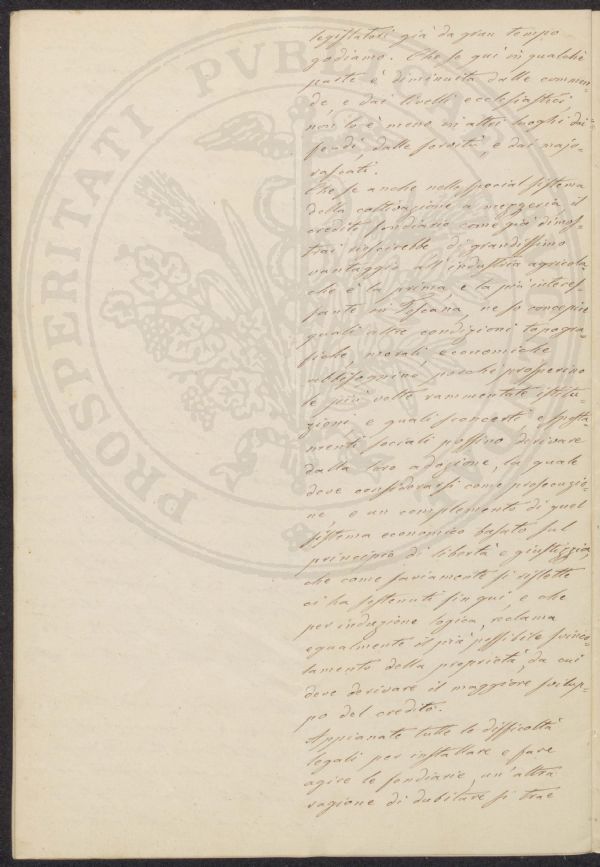 PROSPERITATI PVBLICAE
legislatori già da gran tempo
godiamo. Che se qui in qualche
parte è diminuita dalle commen=
de, e dai livelli ecclesiastici,
non lo è meno in altri luoghi dai
feudi, dalle servitù, e dai majo=
rascati.
Che se anche nello special sistema
della coltivazione a mezzeria il
credito fondiario come già dimos=
trai riescirebbe di grandissimo
vantaggio all'industria agricola,
che è la prima, e la più interes=
sante in Toscana, ne so concepire
quali altre condizioni topogra=
fiche, morali, economiche
abbisognino, perchè prosperino
le più volte rammentate istitu=
zioni e quali sconcerti, e sposta=
menti sociali possino derivare
dalla loro adozione, la quale
deve considerarsi come prosecuzio=
ne, e un complemento di quel
sistema economico basato sul
principio di libertà e giustizia,
che come saviamente si riflette
ci ha sostenuti fin qui, e che
per induzione logica, reclama
egualmente il più possibile svinco=
lamento della proprietà, da cui
deve derivare il maggiore svilup=
po del credito.
Appianate tutte le difficoltà
legali per installare e fare
agire le fondiarie, un'altra
ragione di dubitare si trae